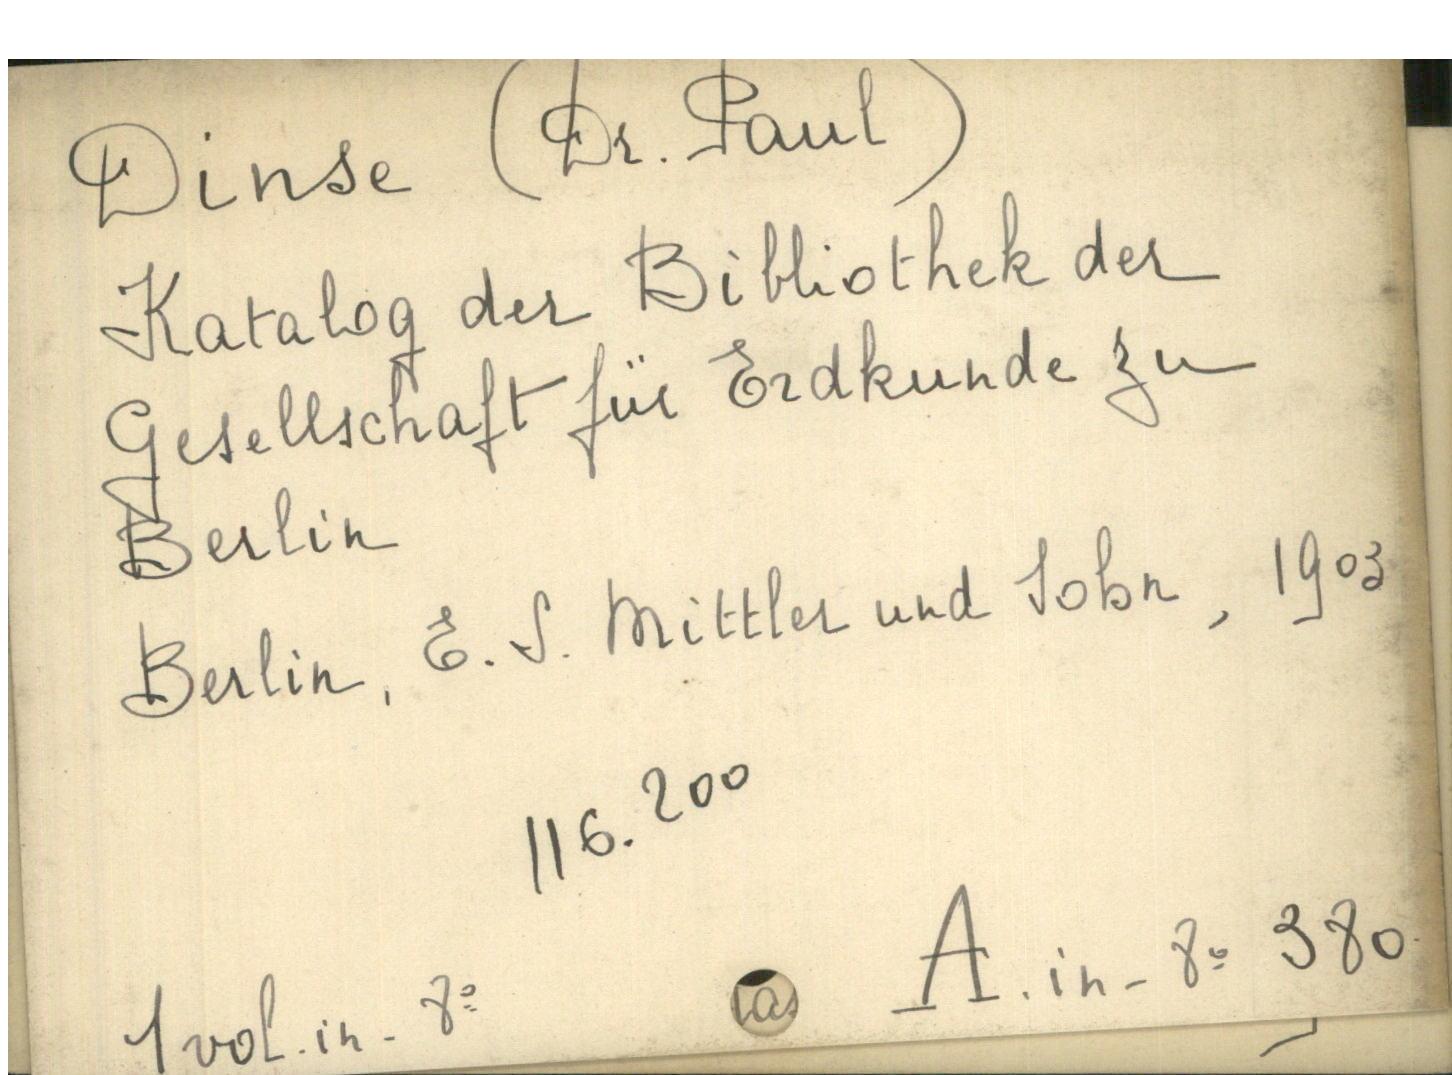 Dinse (Dr. Paul)
Katalog der Bibliothek der
Gesellschaft für Erdkunde zu
Berlin
Berlin, E. S. Mittler und Sohn, 1903
116.200
1 vol. in-8º
A. in-8º 380